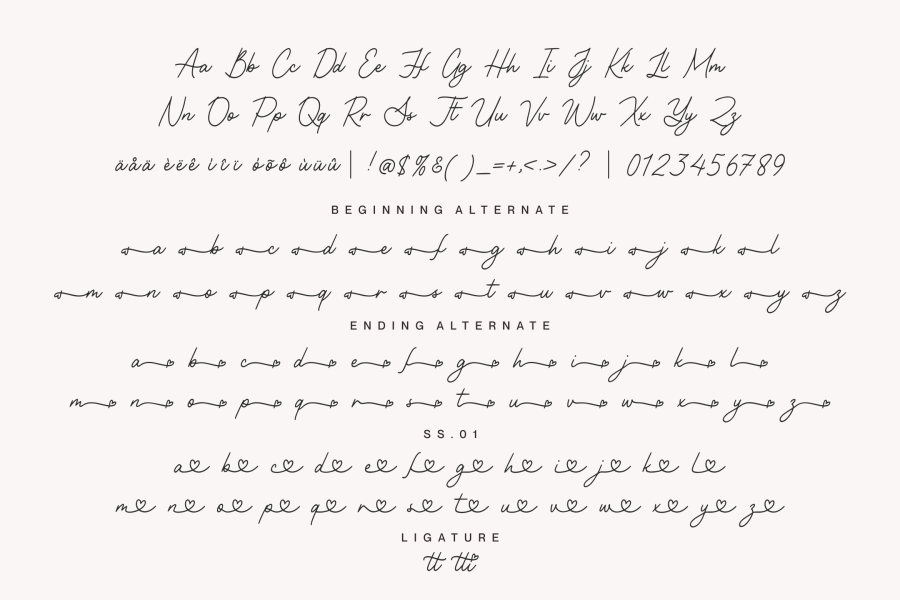 Aa Bb Cc Dd Ee Ff Gg Hh Ii Jj Kk Ll Mm
Nn Oo Pp Qq Rr Ss Tt Uu Vv Ww Xx Yy Zz
äåä èëê ìîï òõô ùüû | !@$%&( )_=+,<.>/? | 0123456789
BEGINNING ALTERNATE
a b c d e f g h i j k l
m n o p q r s t u v w x y z
ENDING ALTERNATE
a b c d e f g h i j k l
m n o p q r s t u v w x y z
SS.01
a b c d e f g h i j k l
m n o p q r s t u v w x y z
LIGATURE
tt tti